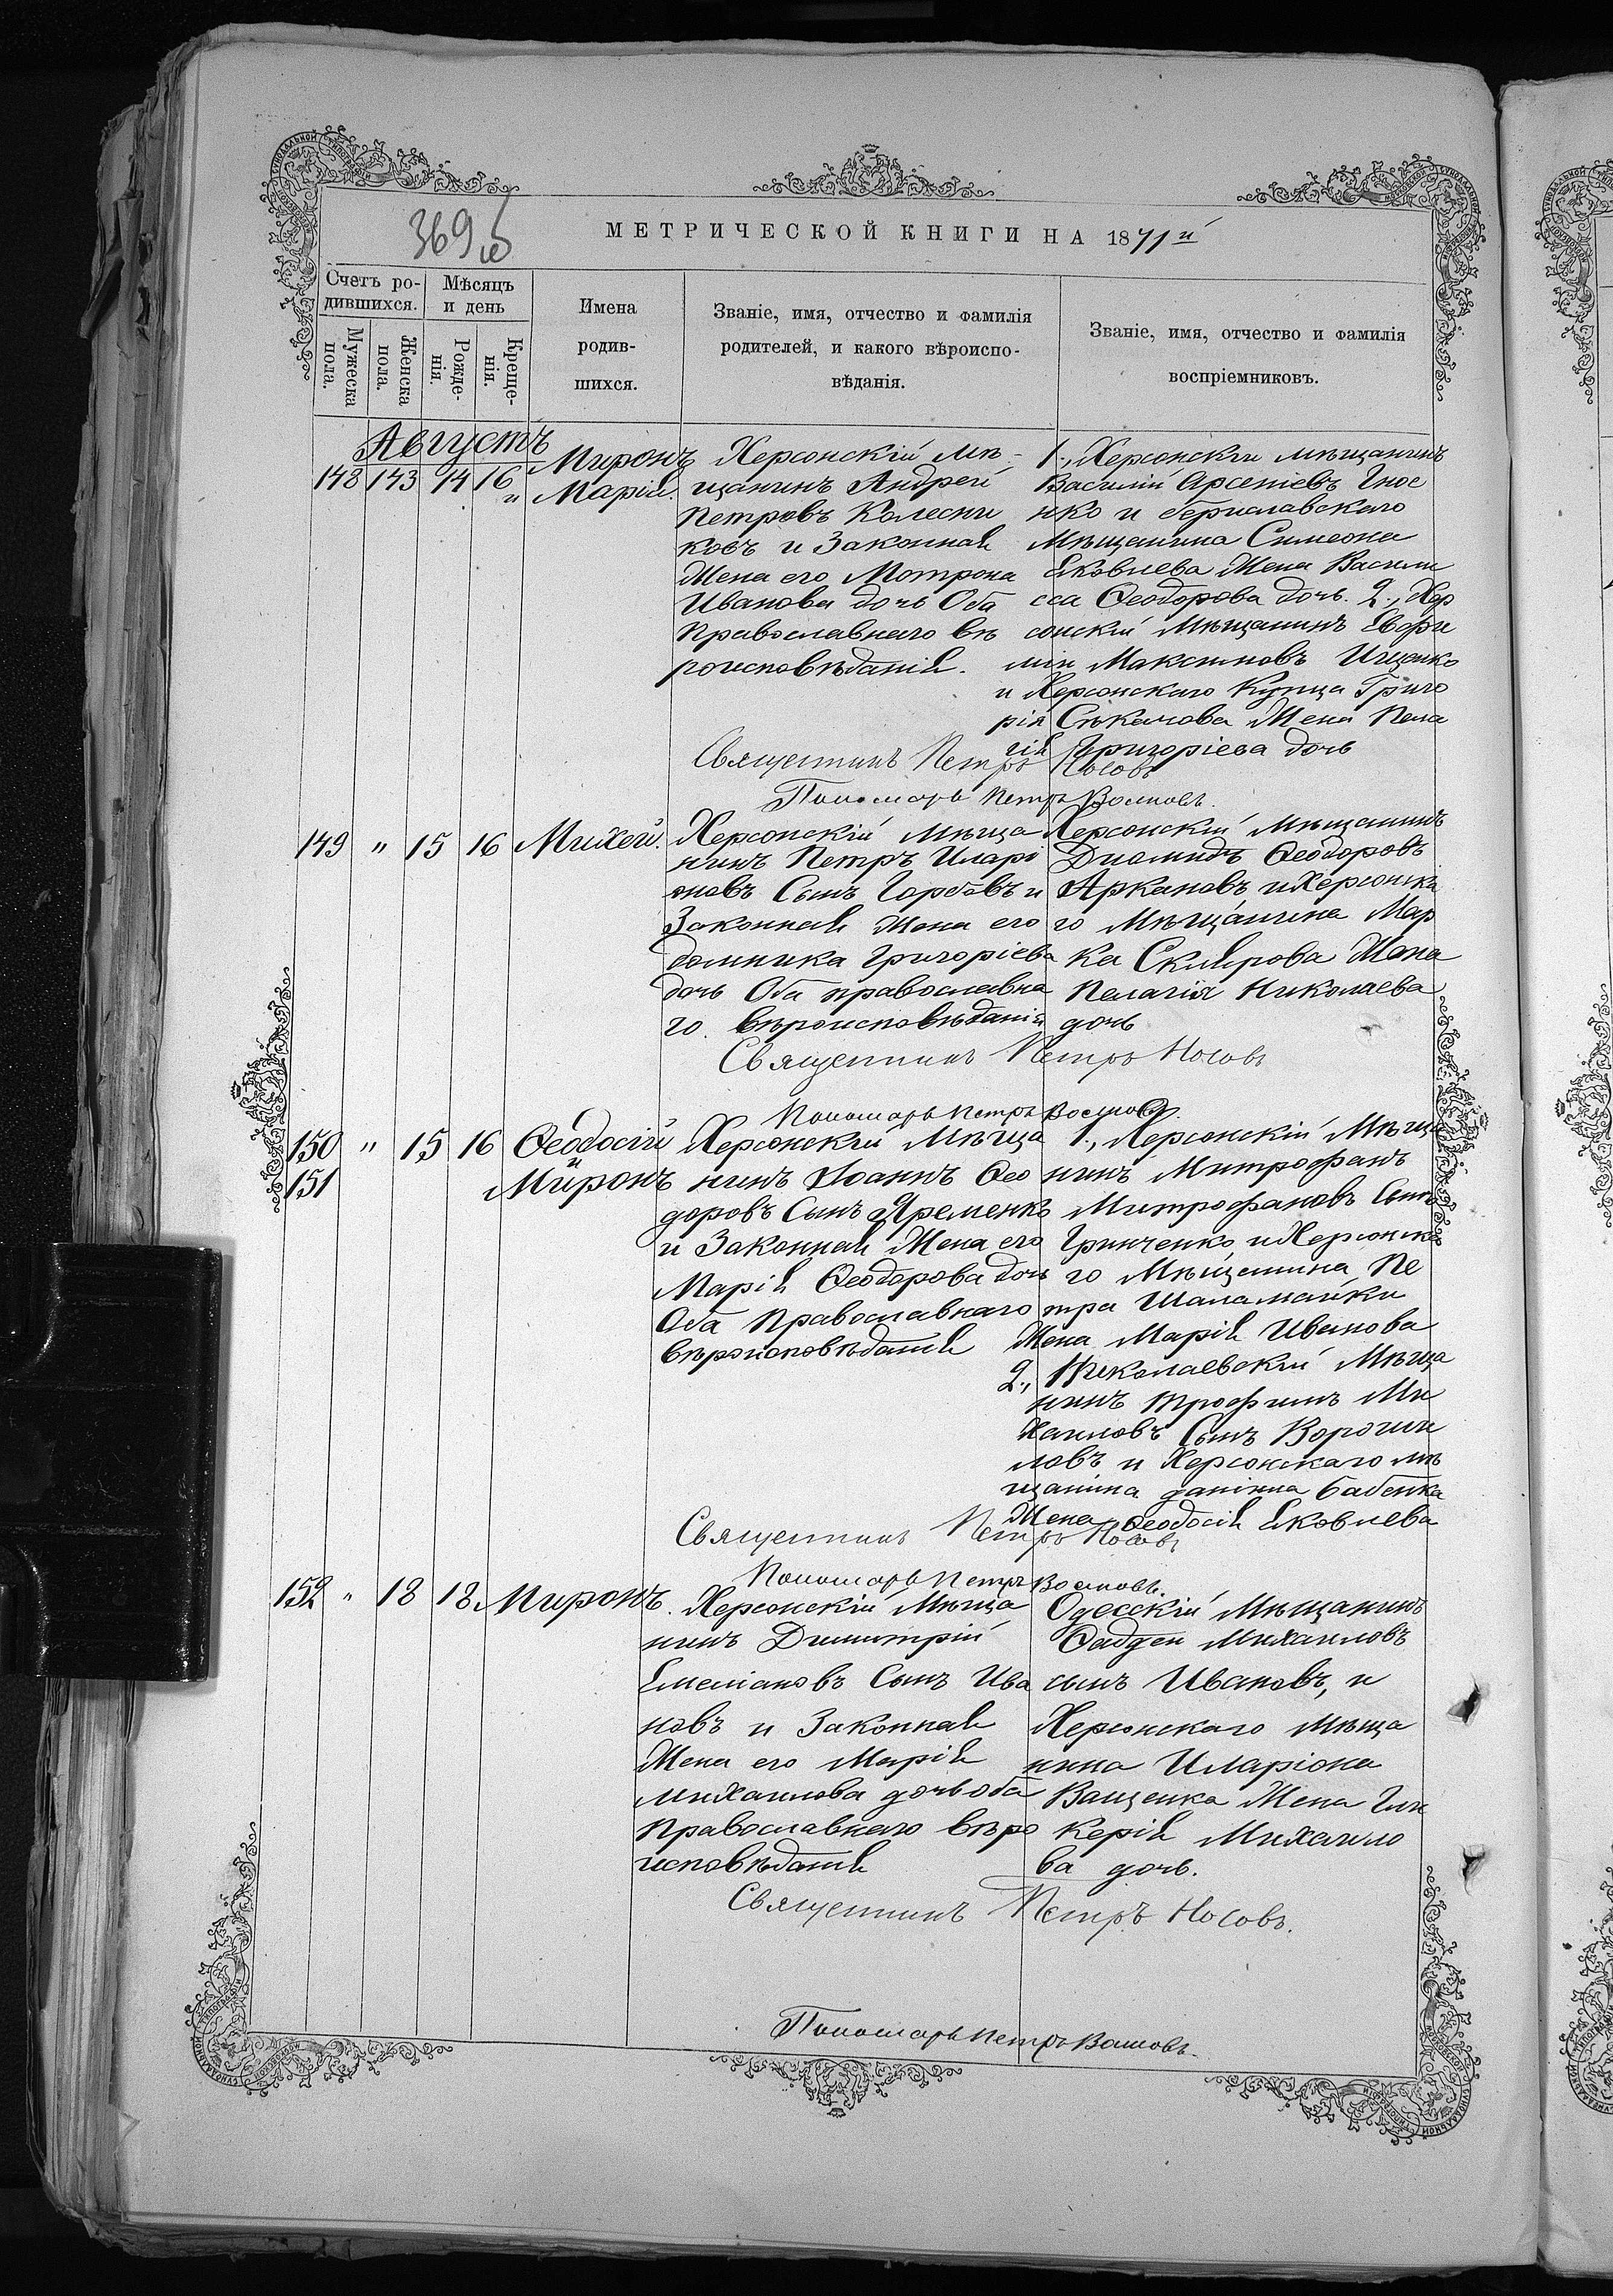 369 об
МЕТРИЧЕСКОЙ КНИГИ НА 1871й
Счетъ ро-
дившихся.
Мужеска
пола.
Женска
пола.
Мѣсяцъ
и день
Рожде-
нія.
Креще-
нія.
Имена
родив-
шихся.
Званіе, имя, отчество и фамилія
родителей, и какого вѣроиспо-
вѣданія.
Званіе, имя, отчество и фамилія
воспріемниковъ.
Августъ
148 143 14 16
Миронъ
и Марія.
Херсонскій мѣ-
щанинъ Андрей
Петровъ Колесни
ковъ и Законная
Жена его Мотрона
Иванова дочь Оба
Православнаго вѣ
роисповѣданія.
1., Херсонскій мѣщанинъ
Василій Арсеніевъ Гное
нко и бериславскаго
Мѣщанина Симеона
Яковлева Жена Васили
сса Ѳеодорова дочь. 2., Хер
сонскій Мѣщанинъ
Максимовъ Ищенко
и Херсонскаго Купца Григо
рія Секачова Жена Пела
гія Григоріева дочь
Священникъ Петръ Носовъ
Пономарь Петръ
149 " 15 16 Михей.
Херсонскій Мѣща
нинъ Петръ Иларі
оновъ Сынъ Горбовъ и
Законная Жена его
Домника Григоріева
дочь Оба православна
го вѣроисповѣданія
Херсонскій Мѣщанинъ
Диомидъ Ѳеодоровъ
Аркановъ и Херсонска
го Мѣщанина Мар
ка Склярова Жена
Пелагія Николаева
дочь
Священникъ Петръ Носовъ
Пономарь Петръ
150 " 15 16 Ѳеодосій
и
151 Миронъ
Херсонскій Мѣща
нинъ Іоаннъ Ѳео
доровъ Сынъ Яременко
и Законная Жена его
Марія Ѳеодорова дочь
Оба Православнаго
вѣроисповѣданія
1., Херсонскій Мѣща
нинъ Митрофанъ
Митрофановъ Сынъ
Гринченко и Херсонска
го Мѣщанина Пе
тра Шаламайки
Жена Марія Иванова
2., Николаевскій Мѣща
нинъ Трофимъ Ми
хаиловъ Сынъ Ворочи
ловъ и Херсонскаго мѣ
щанина даніила бабенка
Жена Ѳеодосія Яковлева
Священникъ Петръ Носовъ
Пономарь Петръ
152 " 18 18 Миронъ.
Херсонскій Мѣща
нинъ Димитрій
Емеліановъ Сынъ Ива
новъ и Законная
Жена его Марія
михаилова дочь оба
Православнаго вѣро
исповѣданія
Одесскій Мѣщанинъ
Ѳаддеи Михаиловъ
сынъ Ивановъ, и
Херсонскаго Мѣща
нина Иларіона
Ващенка Жена Гли
керія Михаило
ва дочь.
Священникъ Петръ Носовъ.
Пономарь Петръ